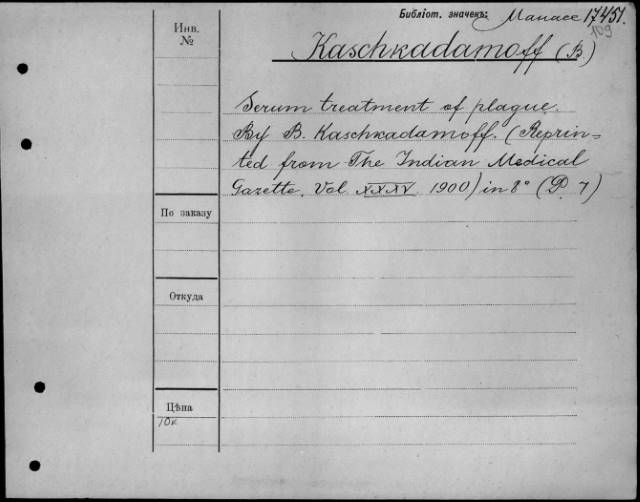 Библіот. значекъ: Манасс 17451.
109
Инв.
№
Kaschkadamoff (B)
Serum treatment of plague.
By B. Kaschkadamoff. (Reprin=
ted from The Indian Medical
Gazette. Vol XXXV 1900) in 8° (P. 7)
По заказу
Откуда
Цѣна
70к